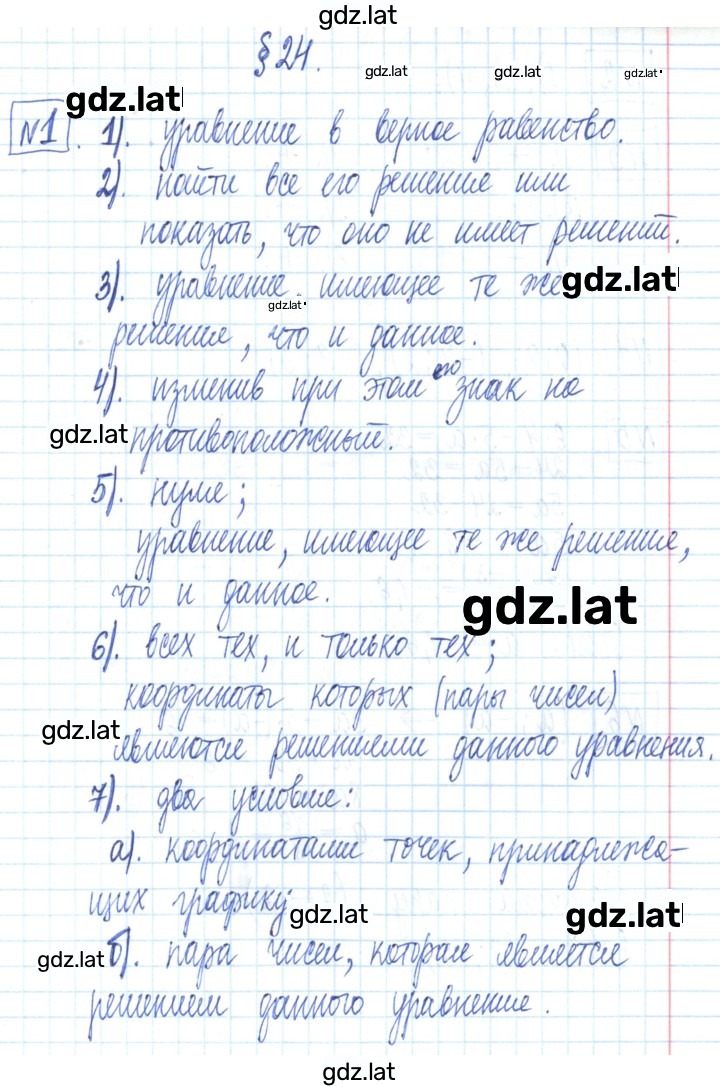 gdz.lat
§ 24.
gdz.lat gdz.lat gdz.lat
gdz.lat
№1. 1). уравнение в верное равенство.
2). найти все его решение или
показать, что оно не имеет решений.
3). уравнение, имеющее те же gdz.lat
gdz.lat
решения, что и данное.
4). изменив при этом его знак на
gdz.lat противоположный.
5). нуля;
уравнение, имеющее те же решения,
что и данное.
gdz.lat
6). всех тех, и только тех;
координаты которых (пары чисел)
gdz.lat
являются решениями данного уравнения.
7). два условия:
а). координатами точек, принадлежа-
щих графику;
gdz.lat gdz.lat
gdz.lat б). пара чисел, которая является
решением данного уравнения.
gdz.lat